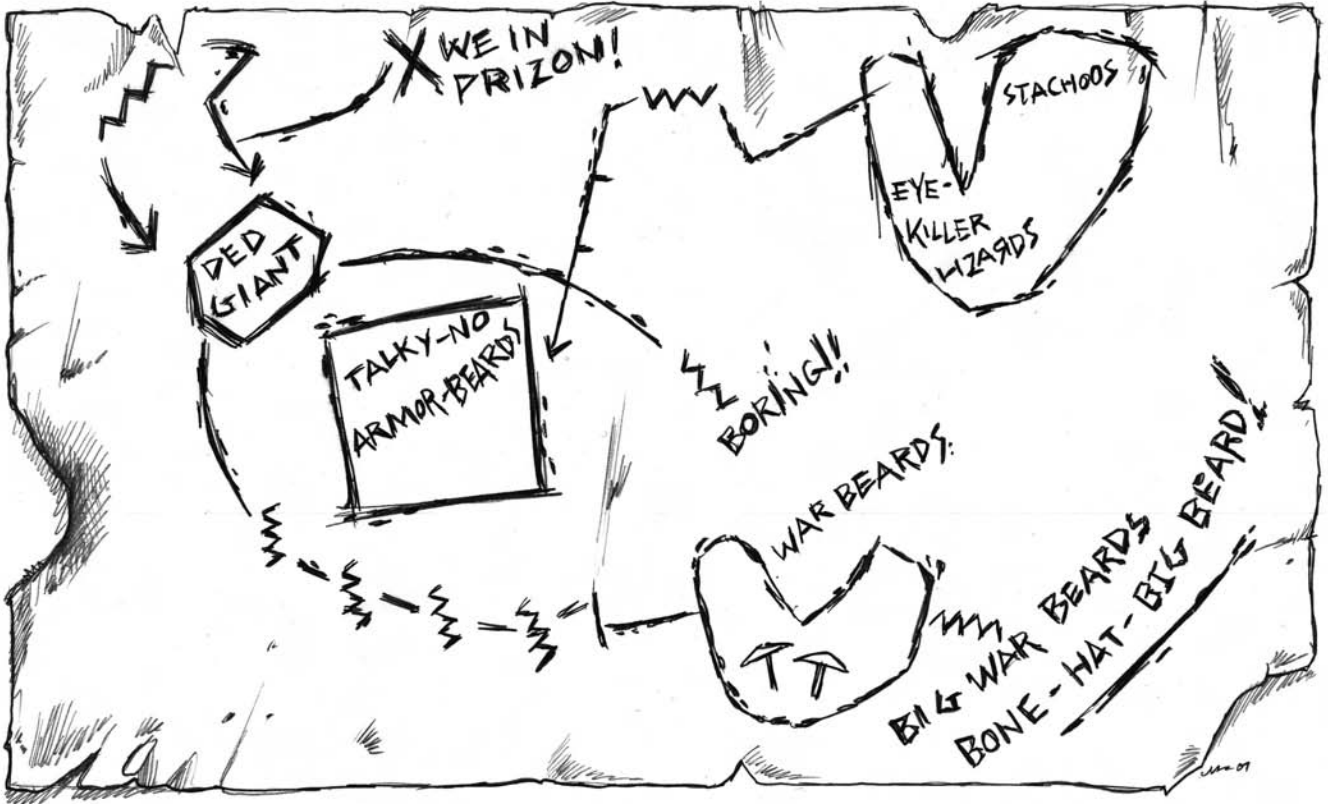 X WE IN
PRIZON!
STACHOOS
EYE-
KILLER
LIZARDS
DED
GIANT
TALKY-NO
ARMOR-BEARDS
BORING!!
WAR BEARDS:
BIG WAR BEARDS
BONE-HAT-BIG BEARD!